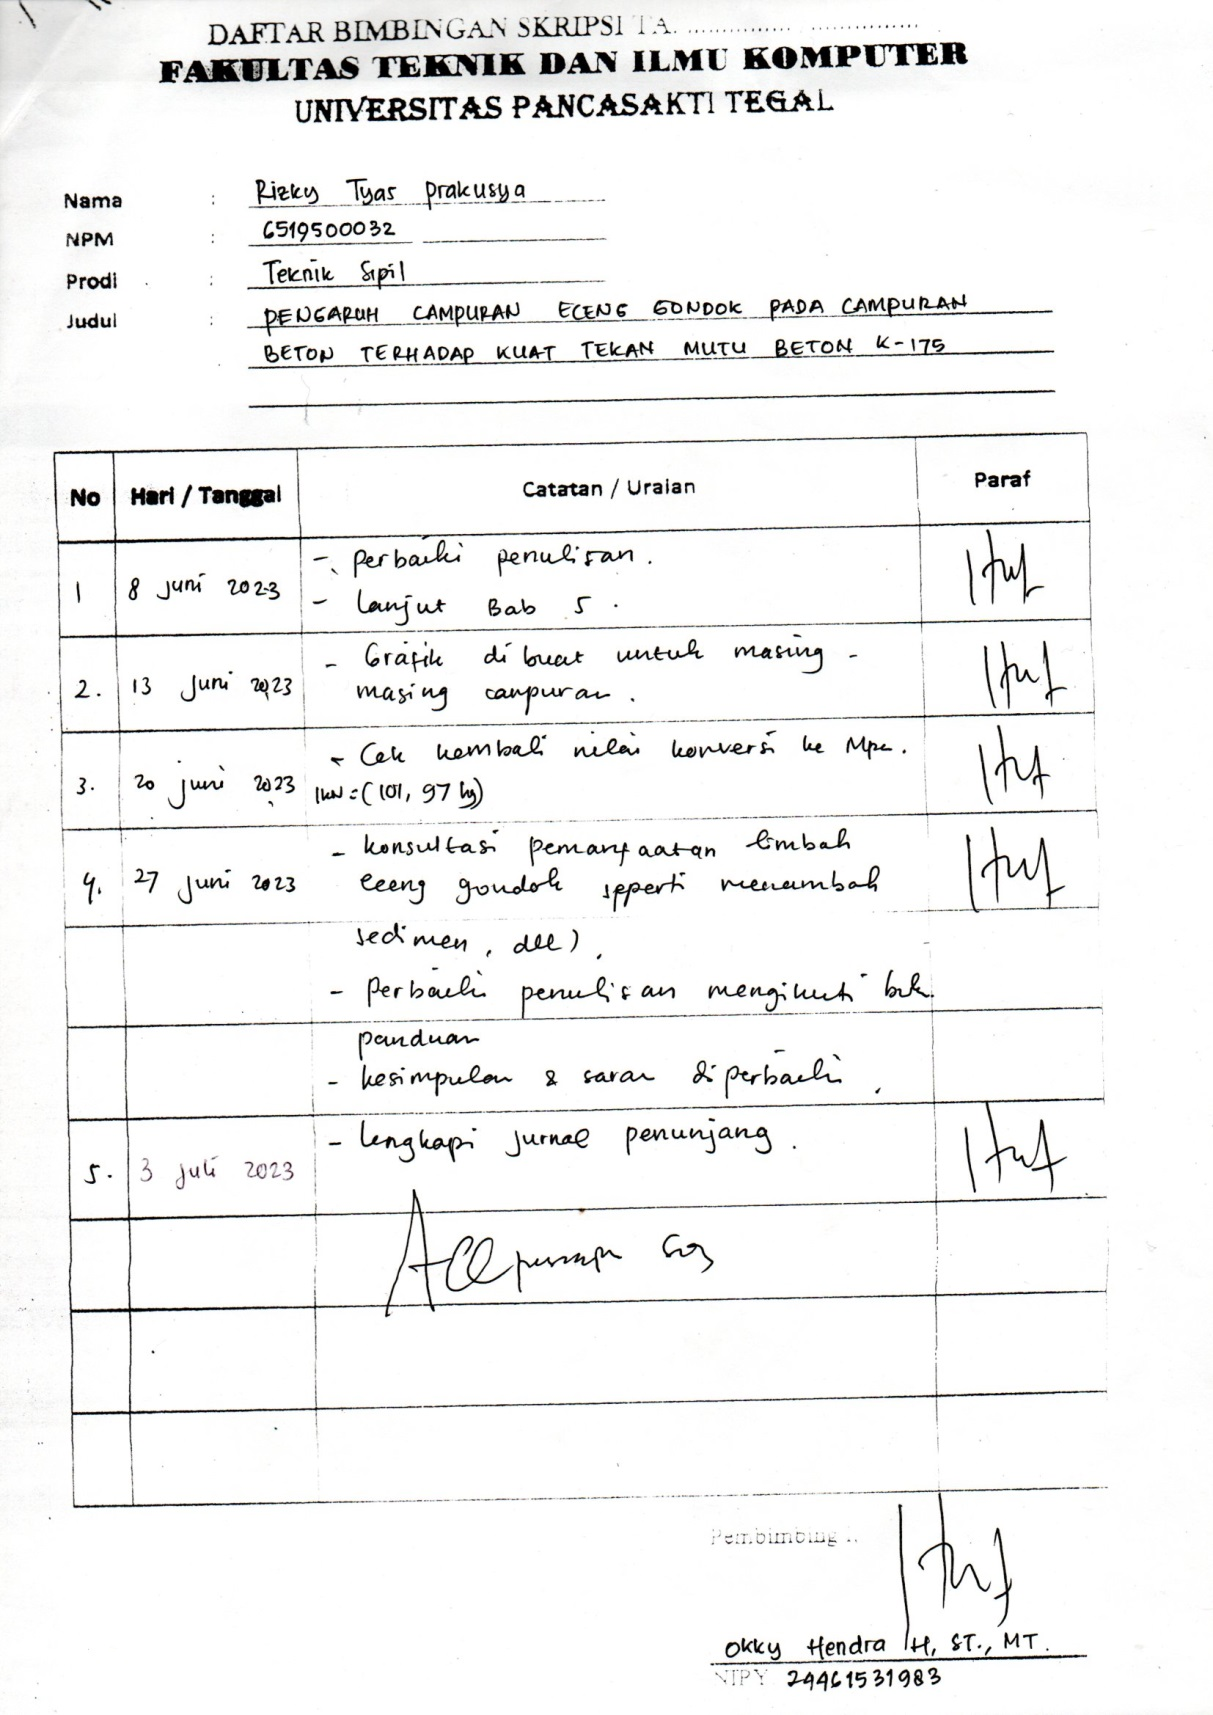 DAFTAR BIMBINGAN SKRIPSI TA. ............... ..................
FAKULTAS TEKNIK DAN ILMU KOMPUTER
UNIVERSITAS PANCASAKTI TEGAL
Nama : Rizky Tyas Prakusya
NPM : 6519500032
Prodi : Teknik Sipil
Judul : PENGARUH CAMPURAN ECENG GONDOK PADA CAMPURAN
BETON TERHADAP KUAT TEKAN MUTU BETON K-175
No Hari / Tanggal Catatan / Uraian Paraf
1 8 Juni 2023 - Perbaiki penulisan.
- Lanjut Bab 5.
2. 13 Juni 2023 - Grafik dibuat untuk masing-
masing campuran.
3. 20 Juni 2023 - Cek kembali nilai konversi ke Mpa.
1kN = (101,97 kg)
4. 27 Juni 2023 - Konsultasi pemanfaatan limbah
eceng gondok seperti menambah
sedimen, dll).
- Perbaiki penulisan mengikuti buku
panduan
- Kesimpulan & saran diperbaiki.
5. 3 Juli 2023 - Lengkapi jurnal penunjang.
Acc
Pembimbing
Okky Hendra H, ST., MT.
NIPY 24461531983